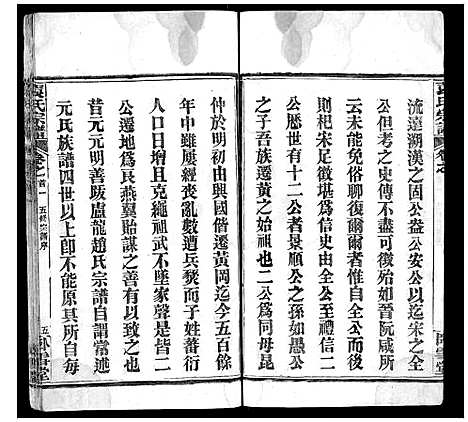 袁氏宗譜 卷之
流遠溯漢之固公益公安公以迄宋之全
公但考之史傳不盡可接有如晉阮咸所
云未能免俗聊復爾爾者惟自全公而後
則杞宋足徵堪為信史由全公到禮信二
公歷世有十二公者景顺公到愚公
之子吾族遷黃之始祖也二公為同母昆
仲於明初由興國偕遷黃岡迄今五百餘
年中雖屢經喪亂數遭兵燹而子姓蕃衍
人口日增且克繩祖武不墜家聲是皆二
公遷地為良燕翼貽謀之善有以致之也
昔元元明善跋盧龍趙氏宗譜自謂常述
元氏族譜四世以上卽不能原其所自每
袁氏宗譜 卷之首一 五修宗譜序 五 臥雪堂